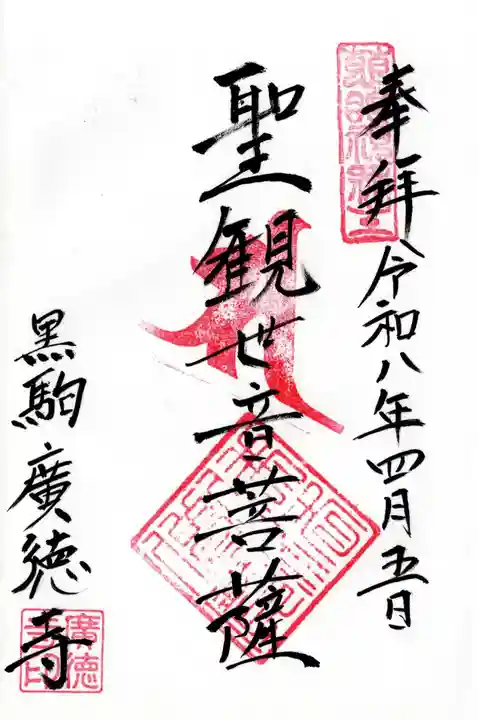 奉拝
令和八年四月五日
聖観世音菩薩
黒駒廣徳寺
廣徳寺印